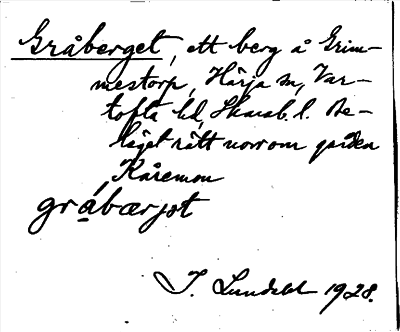 Gråberget, ett berg å Grim-
mestorp, Härja sn, Var-
tofta hd, Skarab. l. Be-
läget rätt norr om gården
Kåremon
gråbærjət
J. Lundahl 1928.